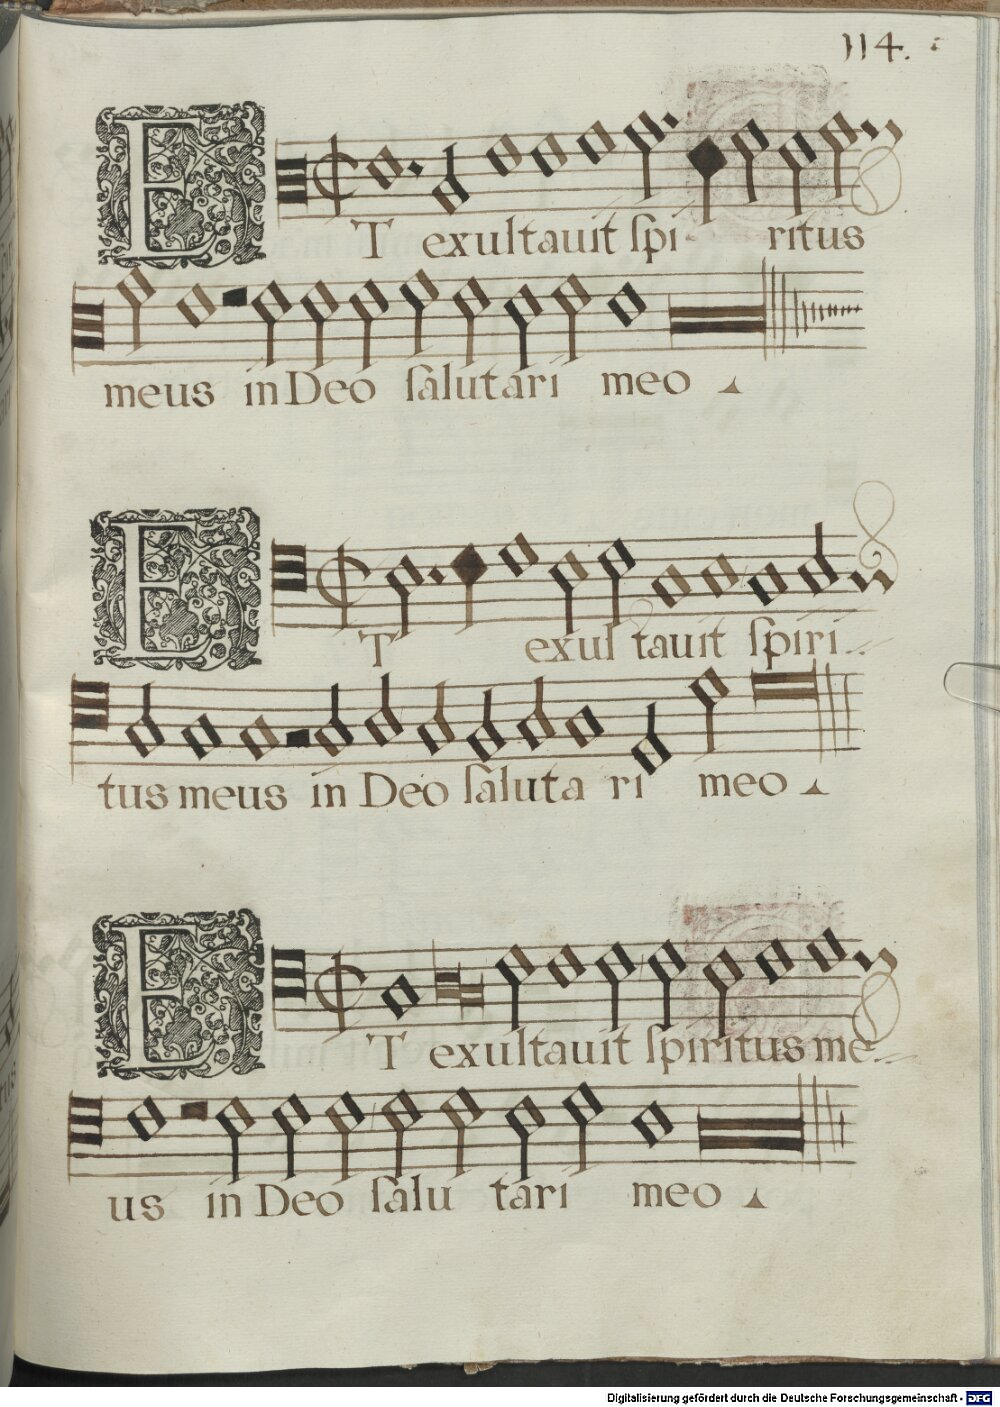 114.
ET exultauit spi- ritus
meus in Deo salutari meo
ET exultauit spiri..
tus meus in Deo saluta ri meo
ET exultauit spiritus me..
us in Deo salu tari meo
Digitalisierung gefördert durch die Deutsche Forschungsgemeinschaft - DFG